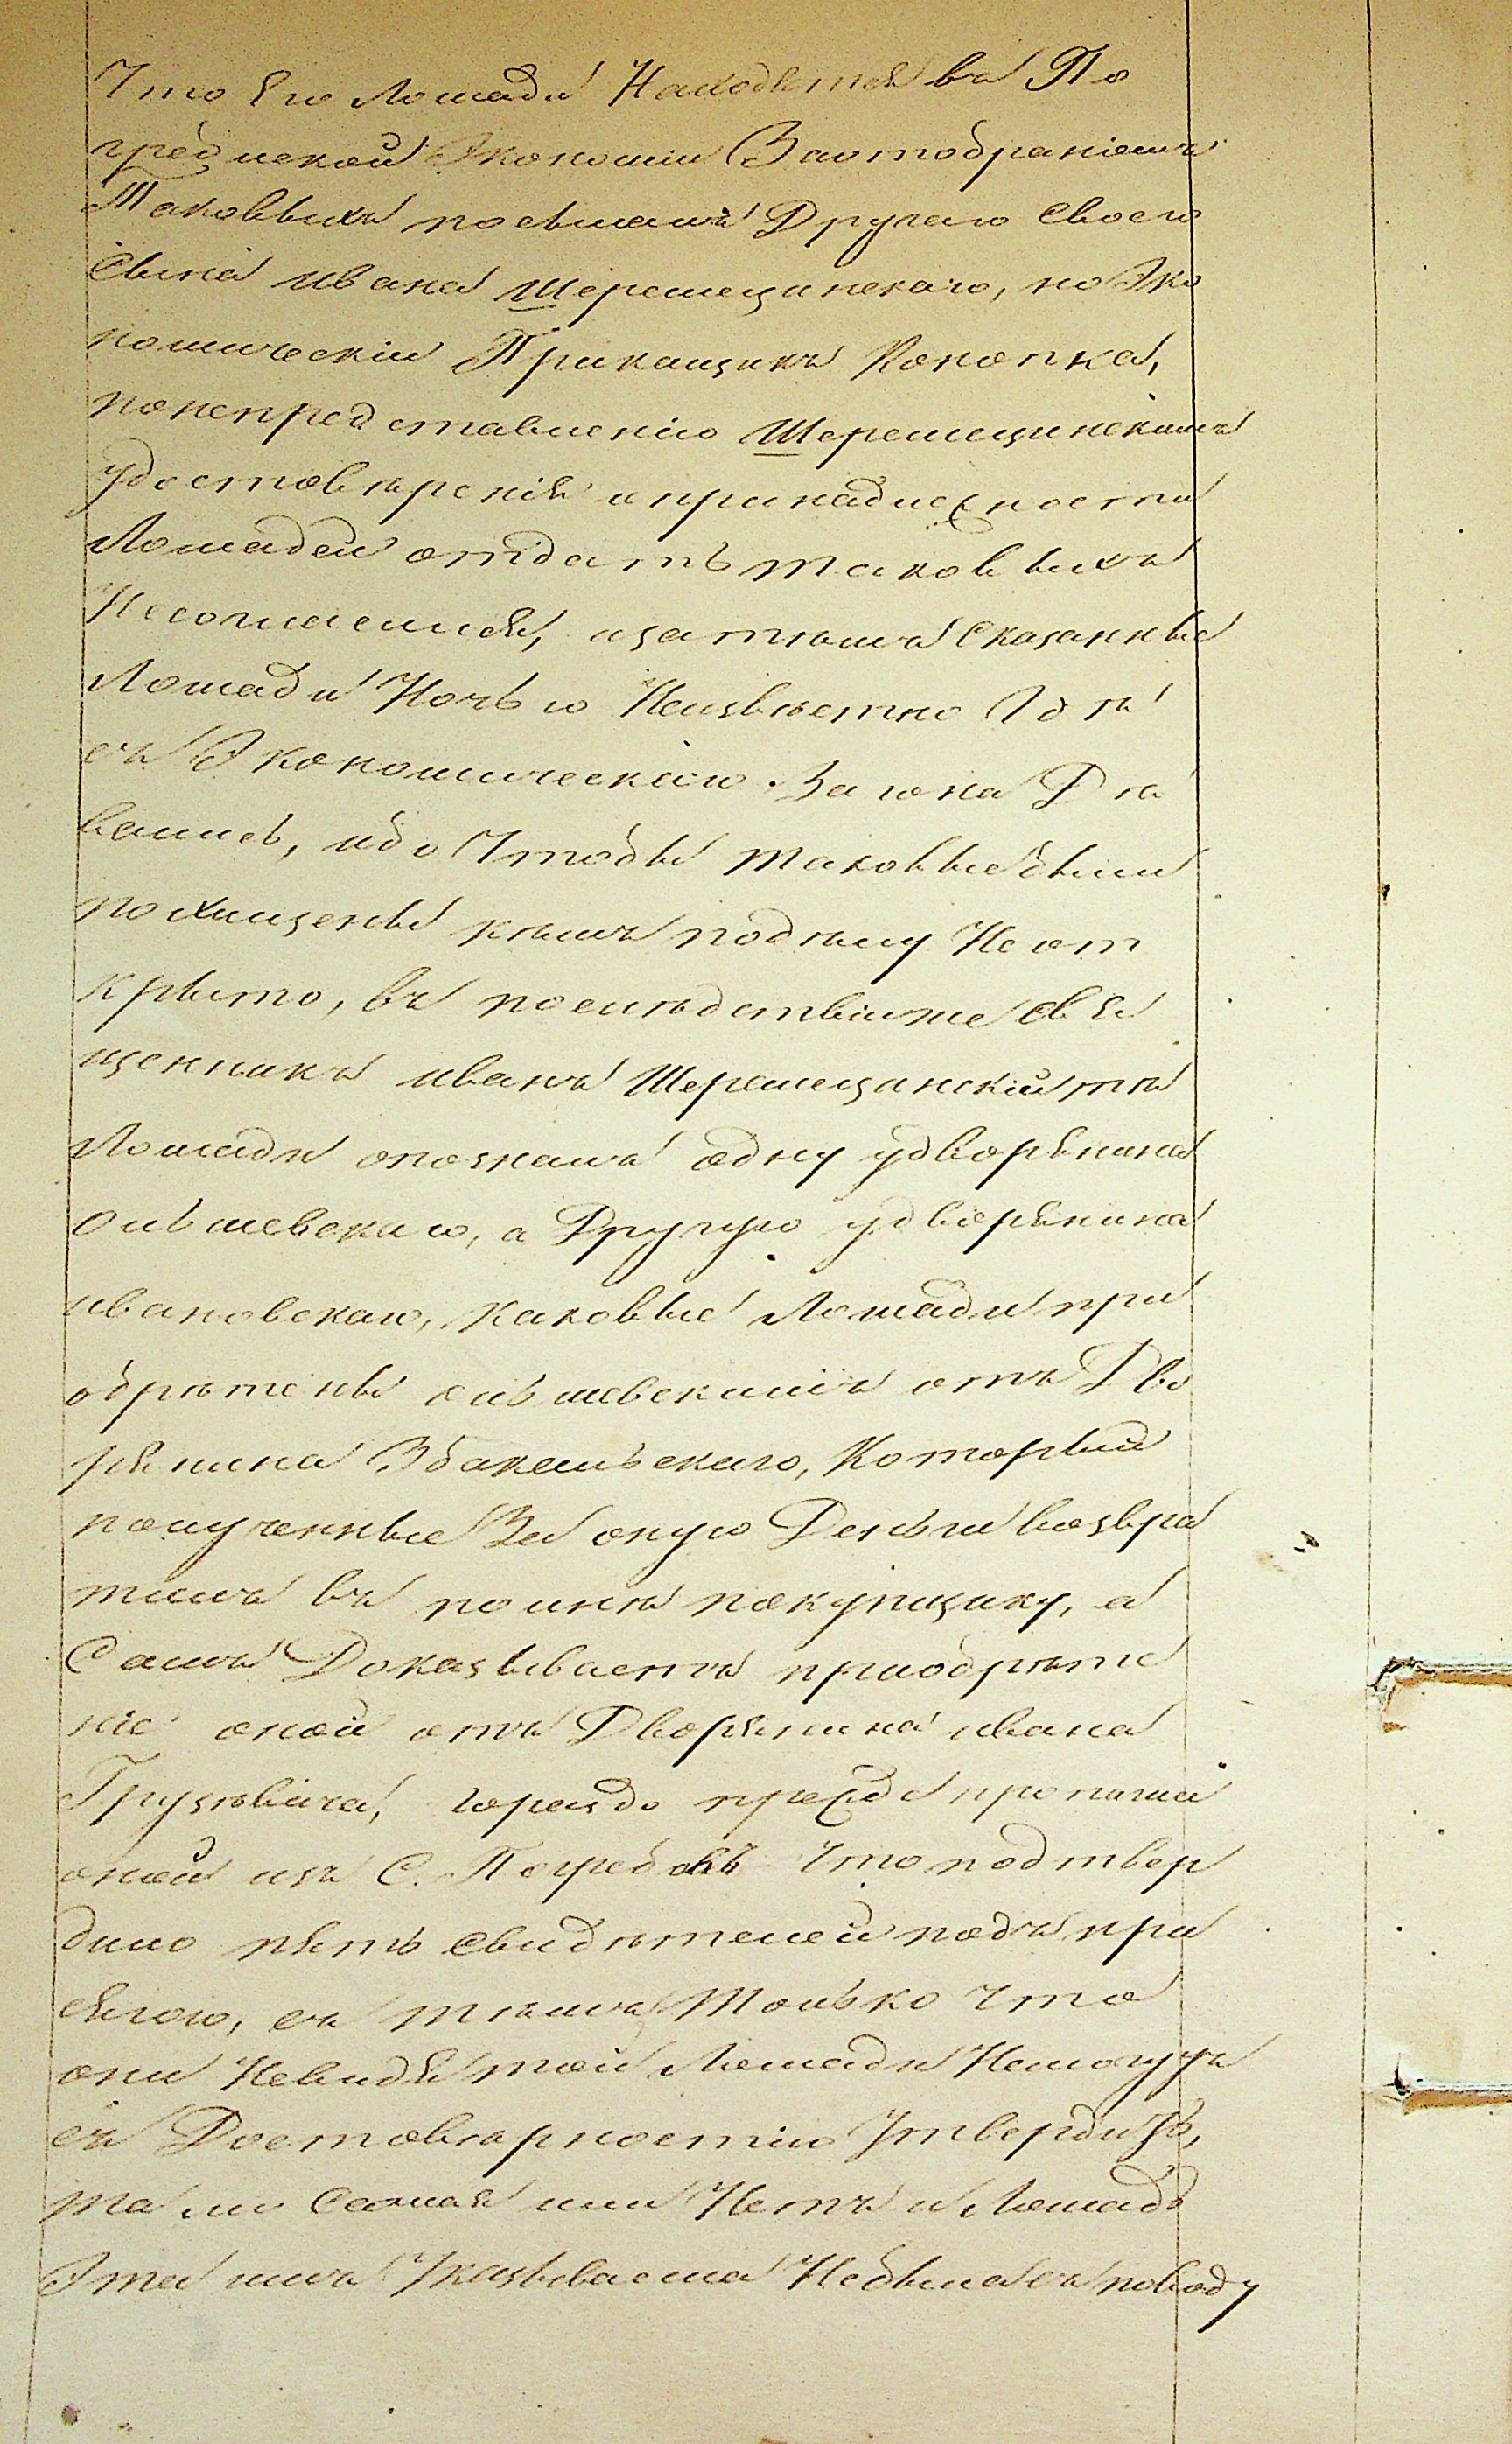 Что его лошади находятся въ По
гребнской Экономіи За отобраніемъ
Таковыхъ посылалъ Другаго своего
Сына ивана Шеремецинскаго, но Эко
номическій Прикащикъ Конопка,
понепредставленію Шеремецинскимъ
удостовѣренія и принадлежности
Лошадей отдать таковыхъ
Несогласился, изатѣмъ сказанные
Лошади Ночью Неизвѣстно Гдѣ
съ Экономическаго Загона Дѣ
вались, ибо Чтобы таковые были
похищены кѣмъ подѣлу Неот
крыто, въ послѣдствіи же свя
щенникъ иванъ Шеремецинскій тѣ
Лошади опозналъ одну удворянина
ольшевскаго, а Другую удворянина
ивановскаго, каковые Лошади при
обрѣтены ольшевскимъ отъ Дво
рянина Збакальскаго, Который
полученные За оную Деньги возвра
тилъ въ полнѣ покупщику, а
Самъ Доказываетъ приобрѣте
ніе оной отъ Дворянина ивана
Грузѣвича, гораздо прежде пропажи
оной изъ С. Погребовъ Что подтвер
дило пять свидѣтелей подъ при
сягою, съ тѣмъ Только что
они Невидя той Лошади Немогутъ
съ Достовѣрностію Утвердить,
та ли Самая или Нетъ и Лошадь
Эта имъ Указываема Небыла съ поводу